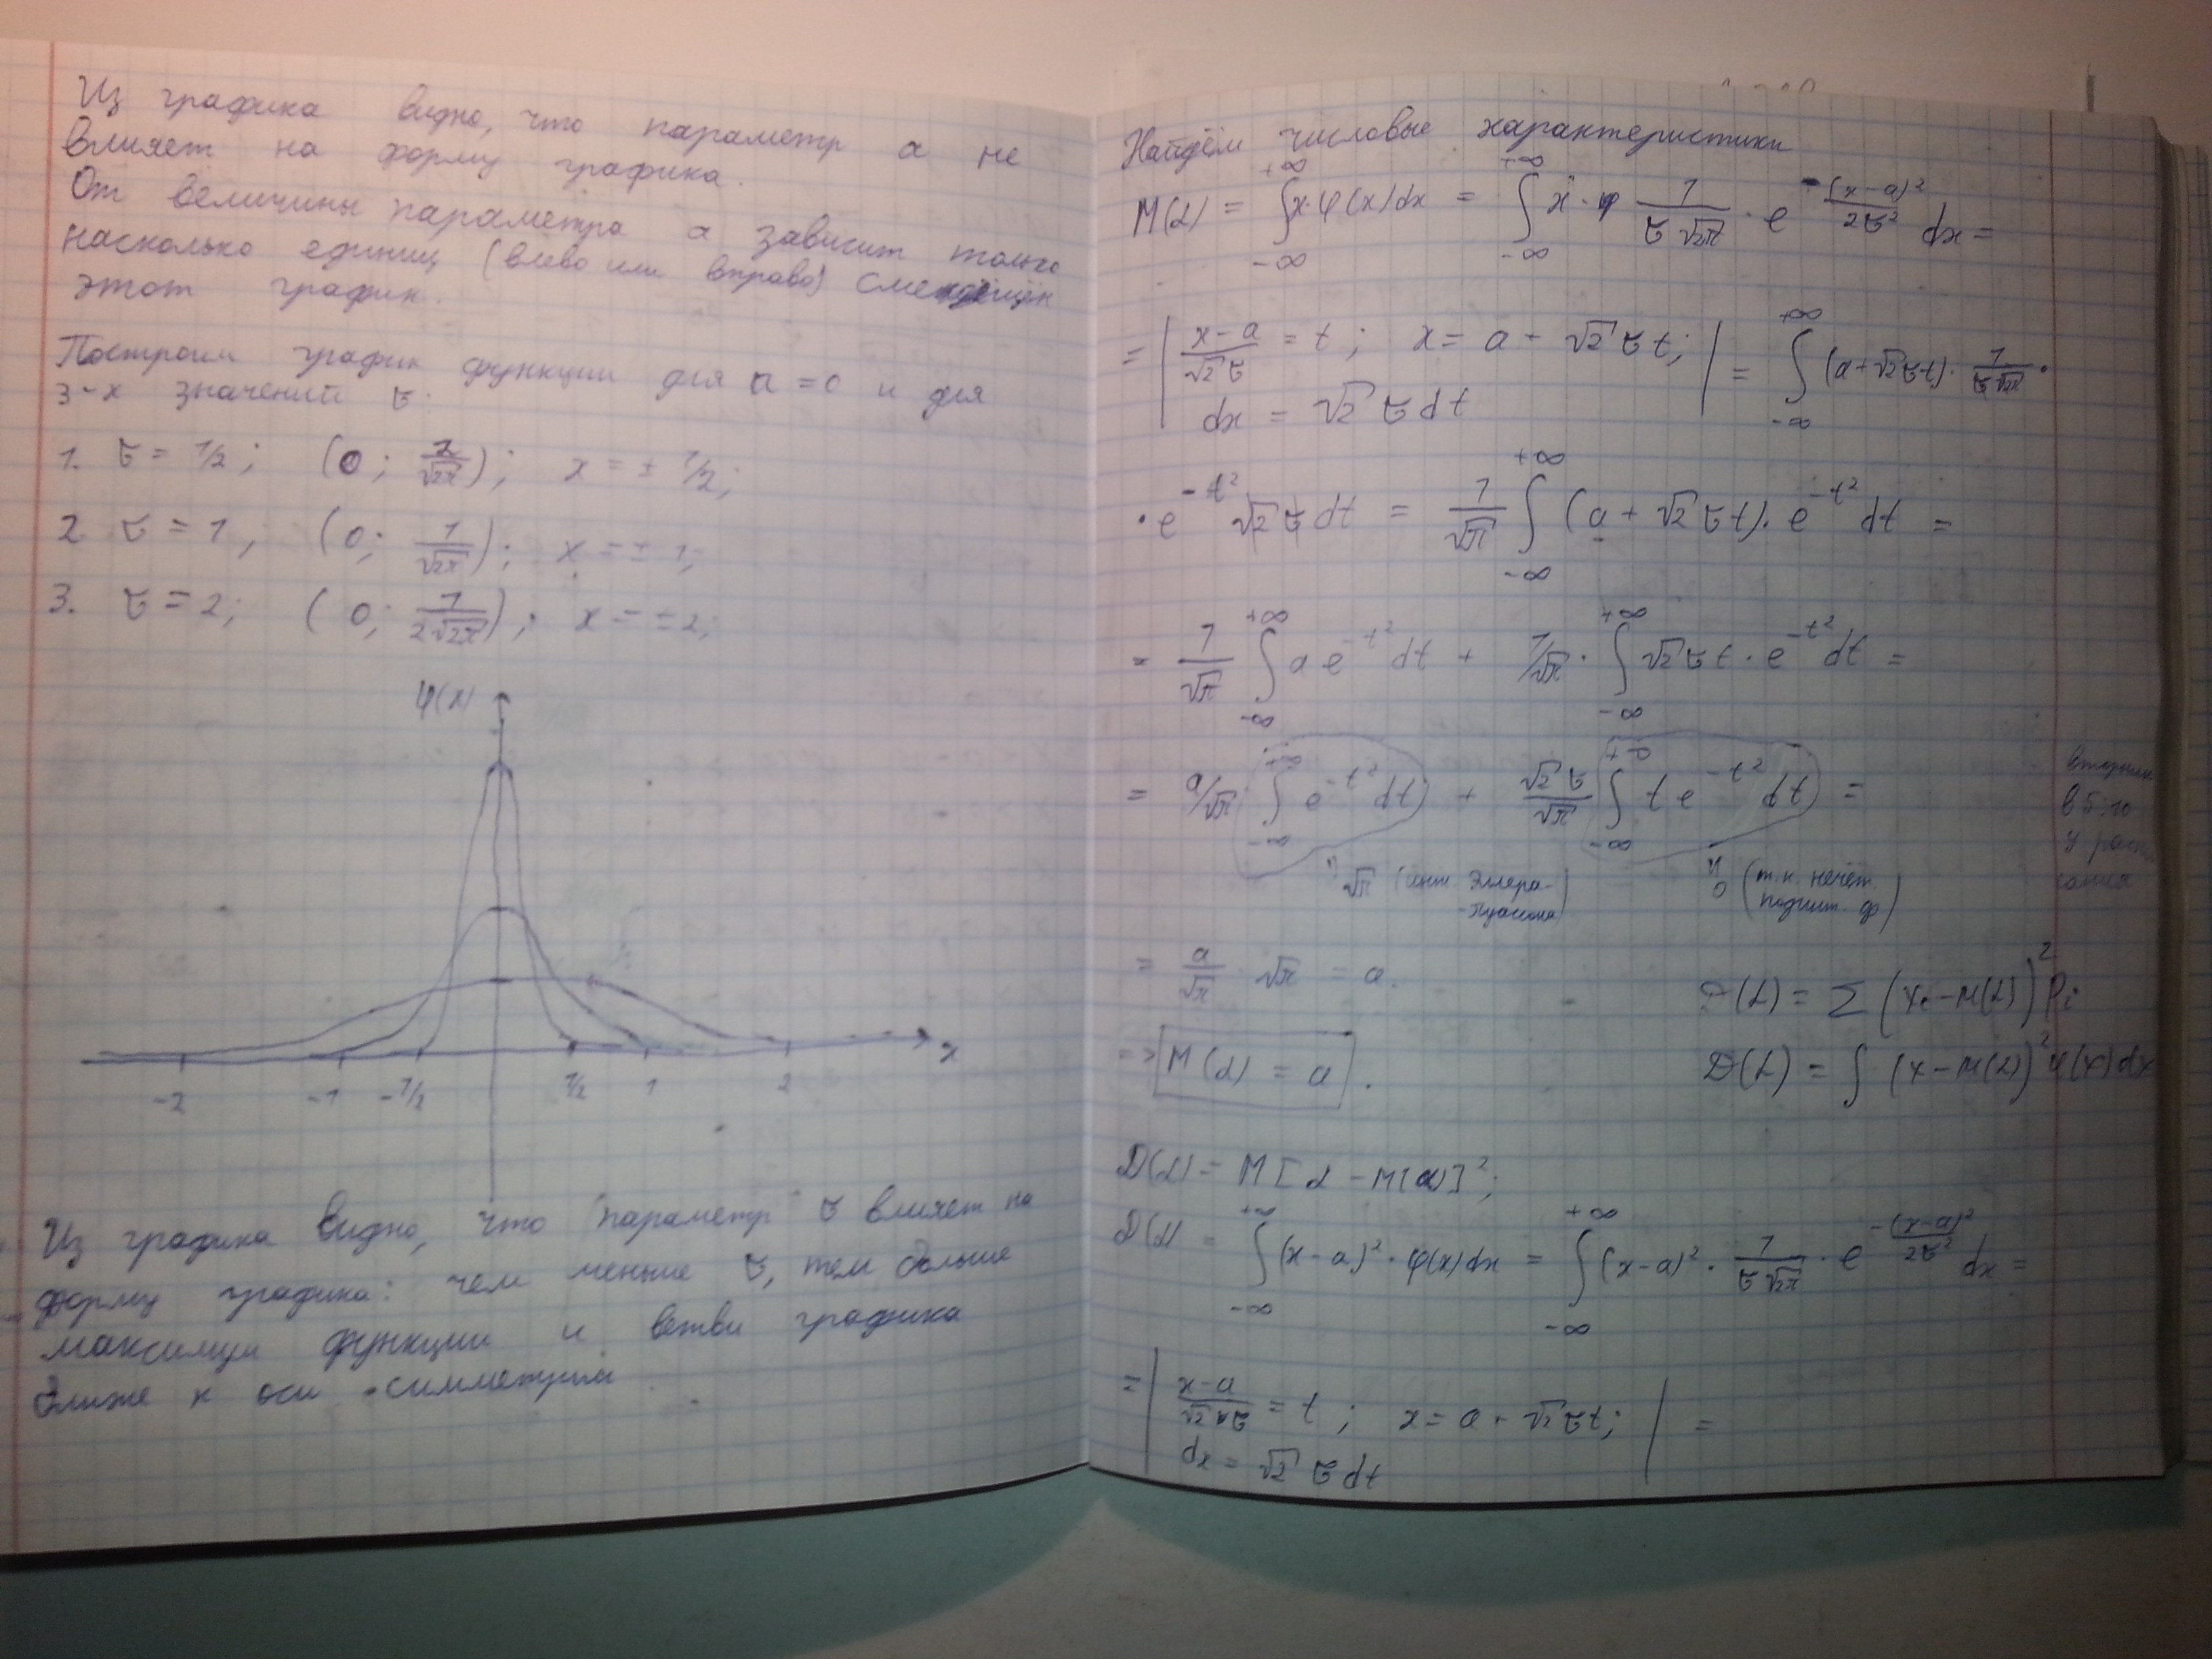 Из графика видно, что параметр a не
влияет на форму графика.
От величины параметра a зависит только
насколько единиц (влево или вправо) смещён
этот график.
Построим график функции для a = 0 и для
3-х значений σ.
1. σ = 1/2; (0; 2/√2π); x = ± 1/2;
2. σ = 1; (0; 1/√2π); x = ± 1;
3. σ = 2; (0; 1/2√2π); x = ± 2;
φ(x)
x
-2 -1 -1/2 1/2 1 2
Из графика видно, что параметр σ влияет на
форму графика: чем меньше σ, тем больше
максимум функции и ветви графика
ближе к оси симметрии
Найдём числовые характеристики
M(α) = ∫_{-∞}^{+∞} x·φ(x)dx = ∫_{-∞}^{+∞} x · 1/(σ√2π) · e^{-(x-a)²/2σ²} dx =
= | (x-a)/(√2σ) = t; x = a + √2σt; | = ∫_{-∞}^{+∞} (a+√2σt) · 1/(σ√2π) ·
dx = √2σdt
· e^{-t²} √2σdt = 1/√π ∫_{-∞}^{+∞} (a + √2σt)· e^{-t²} dt =
= 1/√π ∫_{-∞}^{+∞} a e^{-t²} dt + 1/√π · ∫_{-∞}^{+∞} √2σt · e^{-t²} dt =
= a/√π ∫_{-∞}^{+∞} e^{-t²} dt + √2σ/√π ∫_{-∞}^{+∞} t e^{-t²} dt =
√π (инт. Эйлера-
-Пуассона)
0 (т.к. нечёт.
подинт. ф)
= a/√π · √π = a.
=> M(α) = a.
D(α) = Σ (xi - M(α))² Pi
D(α) = ∫ (x - M(α))² φ(x)dx
D(α) = M[α - M(α)]²;
D(α = ∫_{-∞}^{+∞} (x-a)² · φ(x)dx = ∫_{-∞}^{+∞} (x-a)² · 1/(σ√2π) · e^{-(x-a)²/2σ²} dx =
= | (x-a)/(√2σ) = t; x = a + √2σt; | =
dx = √2σdt